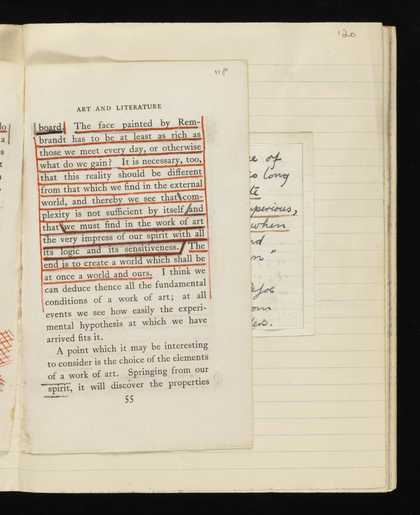 120
118
ART AND LITERATURE
board. The face painted by Rem-
brandt has to be at least as rich as
those we meet every day, or otherwise
what do we gain? It is necessary, too,
that this reality should be different
from that which we find in the external
world, and thereby we see that com-
plexity is not sufficient by itself, and
that we must find in the work of art
the very impress of our spirit with all
its logic and its sensitiveness. The
end is to create a world which shall be
at once a world and ours. I think we
can deduce thence all the fundamental
conditions of a work of art; at all
events we see how easily the experi-
mental hypothesis at which we have
arrived fits it.
A point which it may be interesting
to consider is the choice of the elements
of a work of art. Springing from our
spirit, it will discover the properties
55
of
long
when